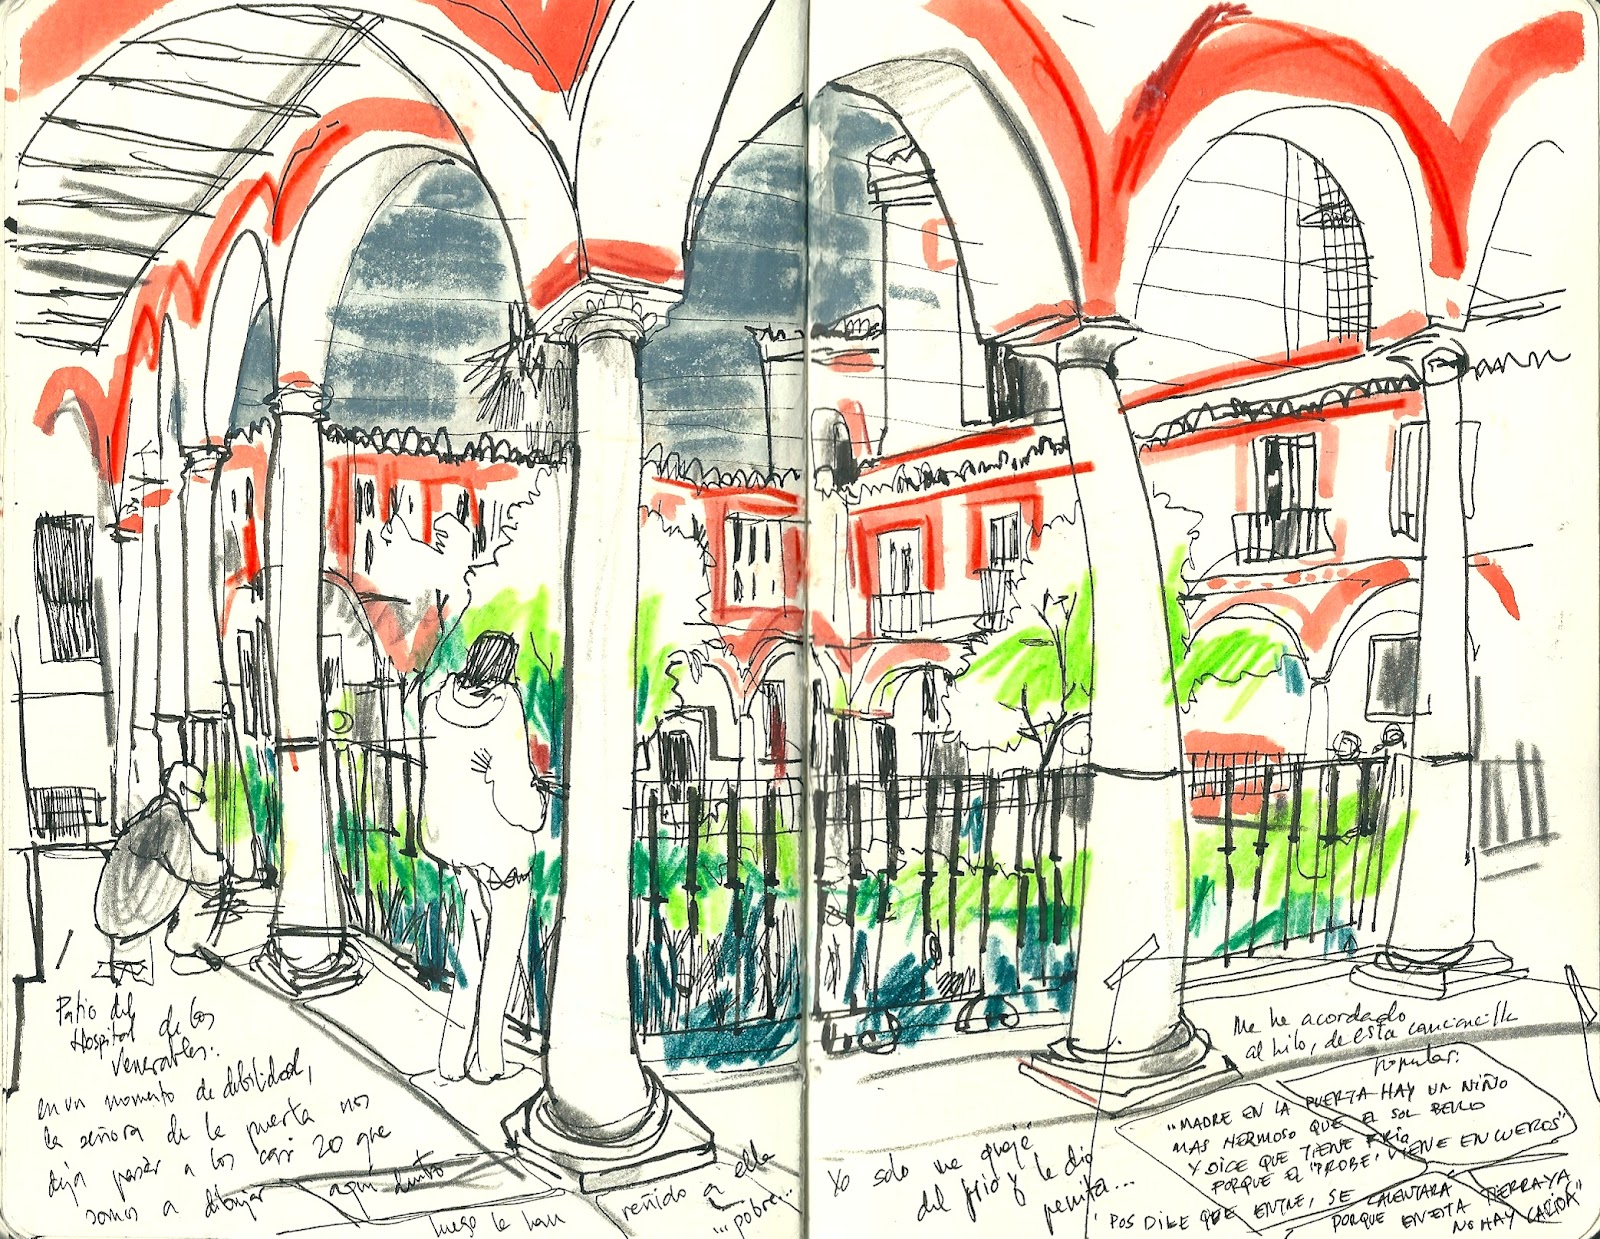 Patio del
Hospital de los
Venerables.
en un momento de debilidad,
la señora de la puerta nos
deja pasar a los casi 20 que
somos a dibujar aquí dentro
luego le han reñido a ella
...pobre...
Yo solo me quejé
del frío y le dio
penita...
Me he acordado
al hilo, de esta cancioncilla
popular:
"MADRE EN LA PUERTA HAY UN NIÑO
MAS HERMOSO QUE EL SOL BELLO
Y DICE QUE TIENE FRÍO
PORQUE EL "PROBE" VIENE EN CUEROS"
"POS DILE QUE ENTRE, SE CALENTARA
PORQUE EN ESTA TIERRA YA
NO HAY CARIDÁ"